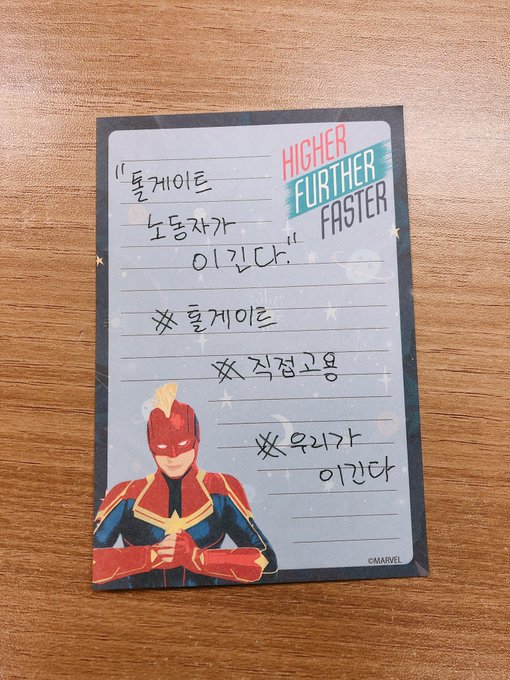 HIGHER
FURTHER
FASTER
"톨게이트
노동자가
이긴다."
#톨게이트
#직접고용
#우리가
이긴다
©MARVEL